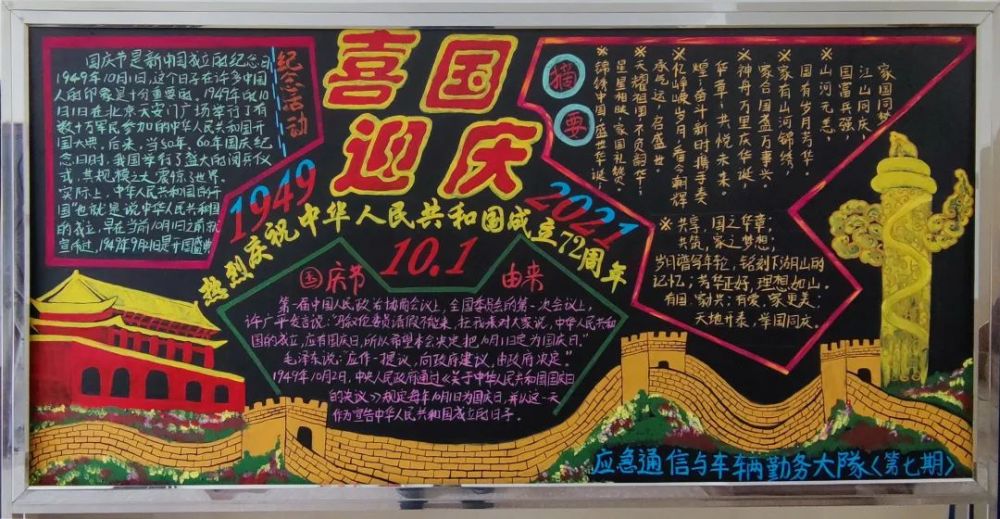 喜国
迎庆
1949
2021
热烈庆祝中华人民共和国成立72周年
10.1
纪念活动
国庆节是新中国成立的纪念日
1949年10月1日,这个日子在许多中国
人的印象是十分重要的。1949年的10
月1日在北京天安门广场举行了有
数十万军民参加的中华人民共和国开
国大典。后来,当50年、60年国庆纪
念日时,我国举行了盛大的阅兵仪
式,其规模之大震惊了世界。
实际上,中华人民共和国的开
国"也就是说中华人民共和国
的成立,早在当前10月1日之前就
宣布过,
国庆节 由来
第一届中国人民政治协商会议上,全国委员会的第一次会议上,
许广平发言说:"马叙伦委员请假不能来,托我来对大家说,中华人民共和
国的成立,应有国庆日,所以希望本会决定把10月1日定为国庆日。"
毛泽东说:"应作一提议,向政府建议,由政府决定"。
1949年10月2日,中央人民政府通过《关于中华人民共和国国庆日
的决议》规定每年10月1日为国庆日,并以这一天
作为宣告中华人民共和国成立的日子。
摘要
家国同秋
江山同庆,
国富兵强,
山河无恙,
※国有岁月芳华,
※家有山河锦绣,
家合国盛万事兴。
※神舟万里庆华诞,
华章共悦未来。
煌奋斗新时携手奏
※忆峥嵘岁月,看今朝辉
承气运,启盛世
※天耀祖国不负韶华,
星星相映,家国礼赞。
※锦绣中国,盛世华诞,
※共享,国之华章;
共筑,家之梦想;
岁月谱写年轮,铭刻下湖山的
记忆;芳华正好,理想如山。
有国,家兴;有爱,家更美;
天地开泰,举国同庆。
应急通信与车辆勤务大隊〈第七期〉